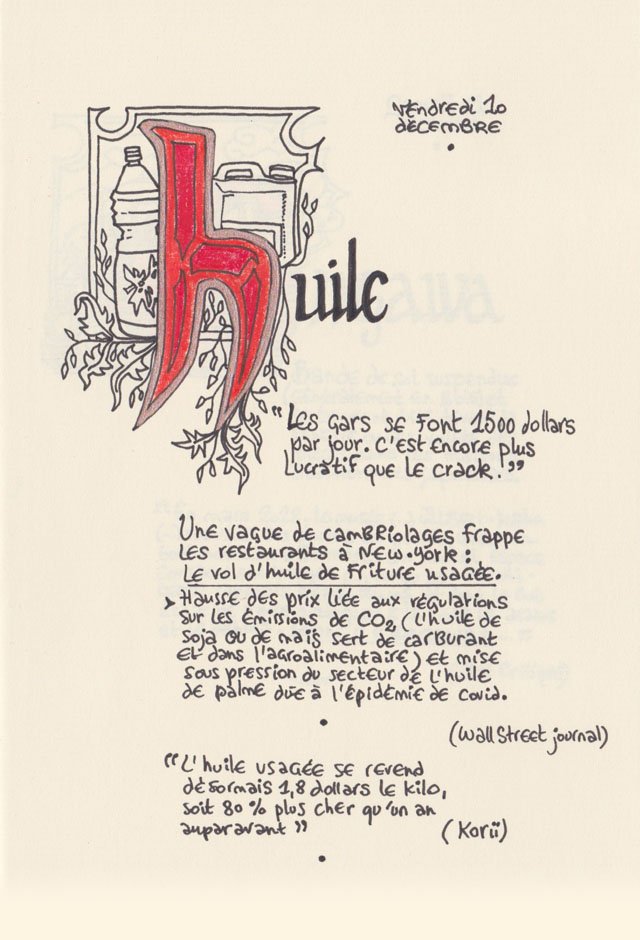 Vendredi 10
décembre
•
huile
“Les gars se font 1500 dollars
par jour. C'est encore plus
lucratif que le crack!”
Une vague de cambriolages frappe
les restaurants à New-York :
Le vol d'huile de friture usagée.
➤ Hausse des prix liée aux régulations
sur les émissions de CO₂ (l'huile de
soja ou de maïs sert de carburant
et dans l'agroalimentaire) et mise
sous pression du secteur de l'huile
de palme dûe à l'épidémie de covid.
•
(Wall Street journal)
“L'huile usagée se revend
désormais 1,8 dollars le kilo,
soit 80 % plus cher qu'un an
auparavant”
(Korii)
•